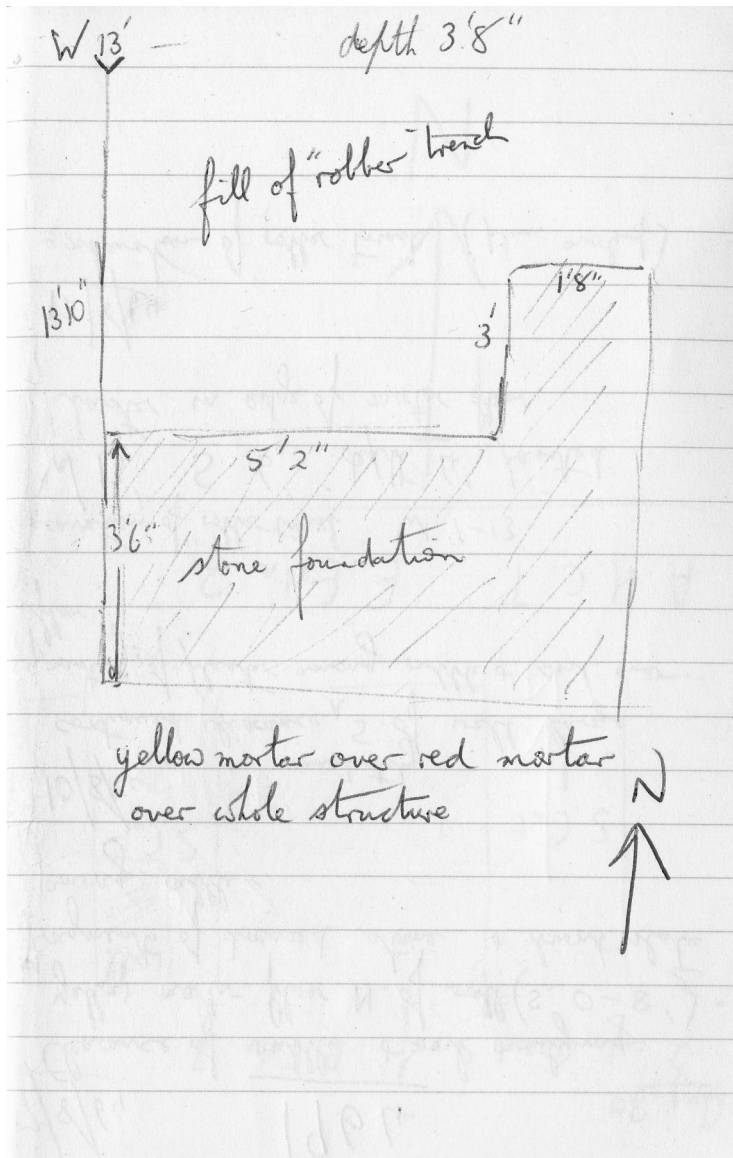 W 13'
depth 3'8"
fill of "robber" trench
1'8"
13'10"
3'
5'2"
3'6"
stone foundation
yellow mortar over red mortar
over whole structure
N